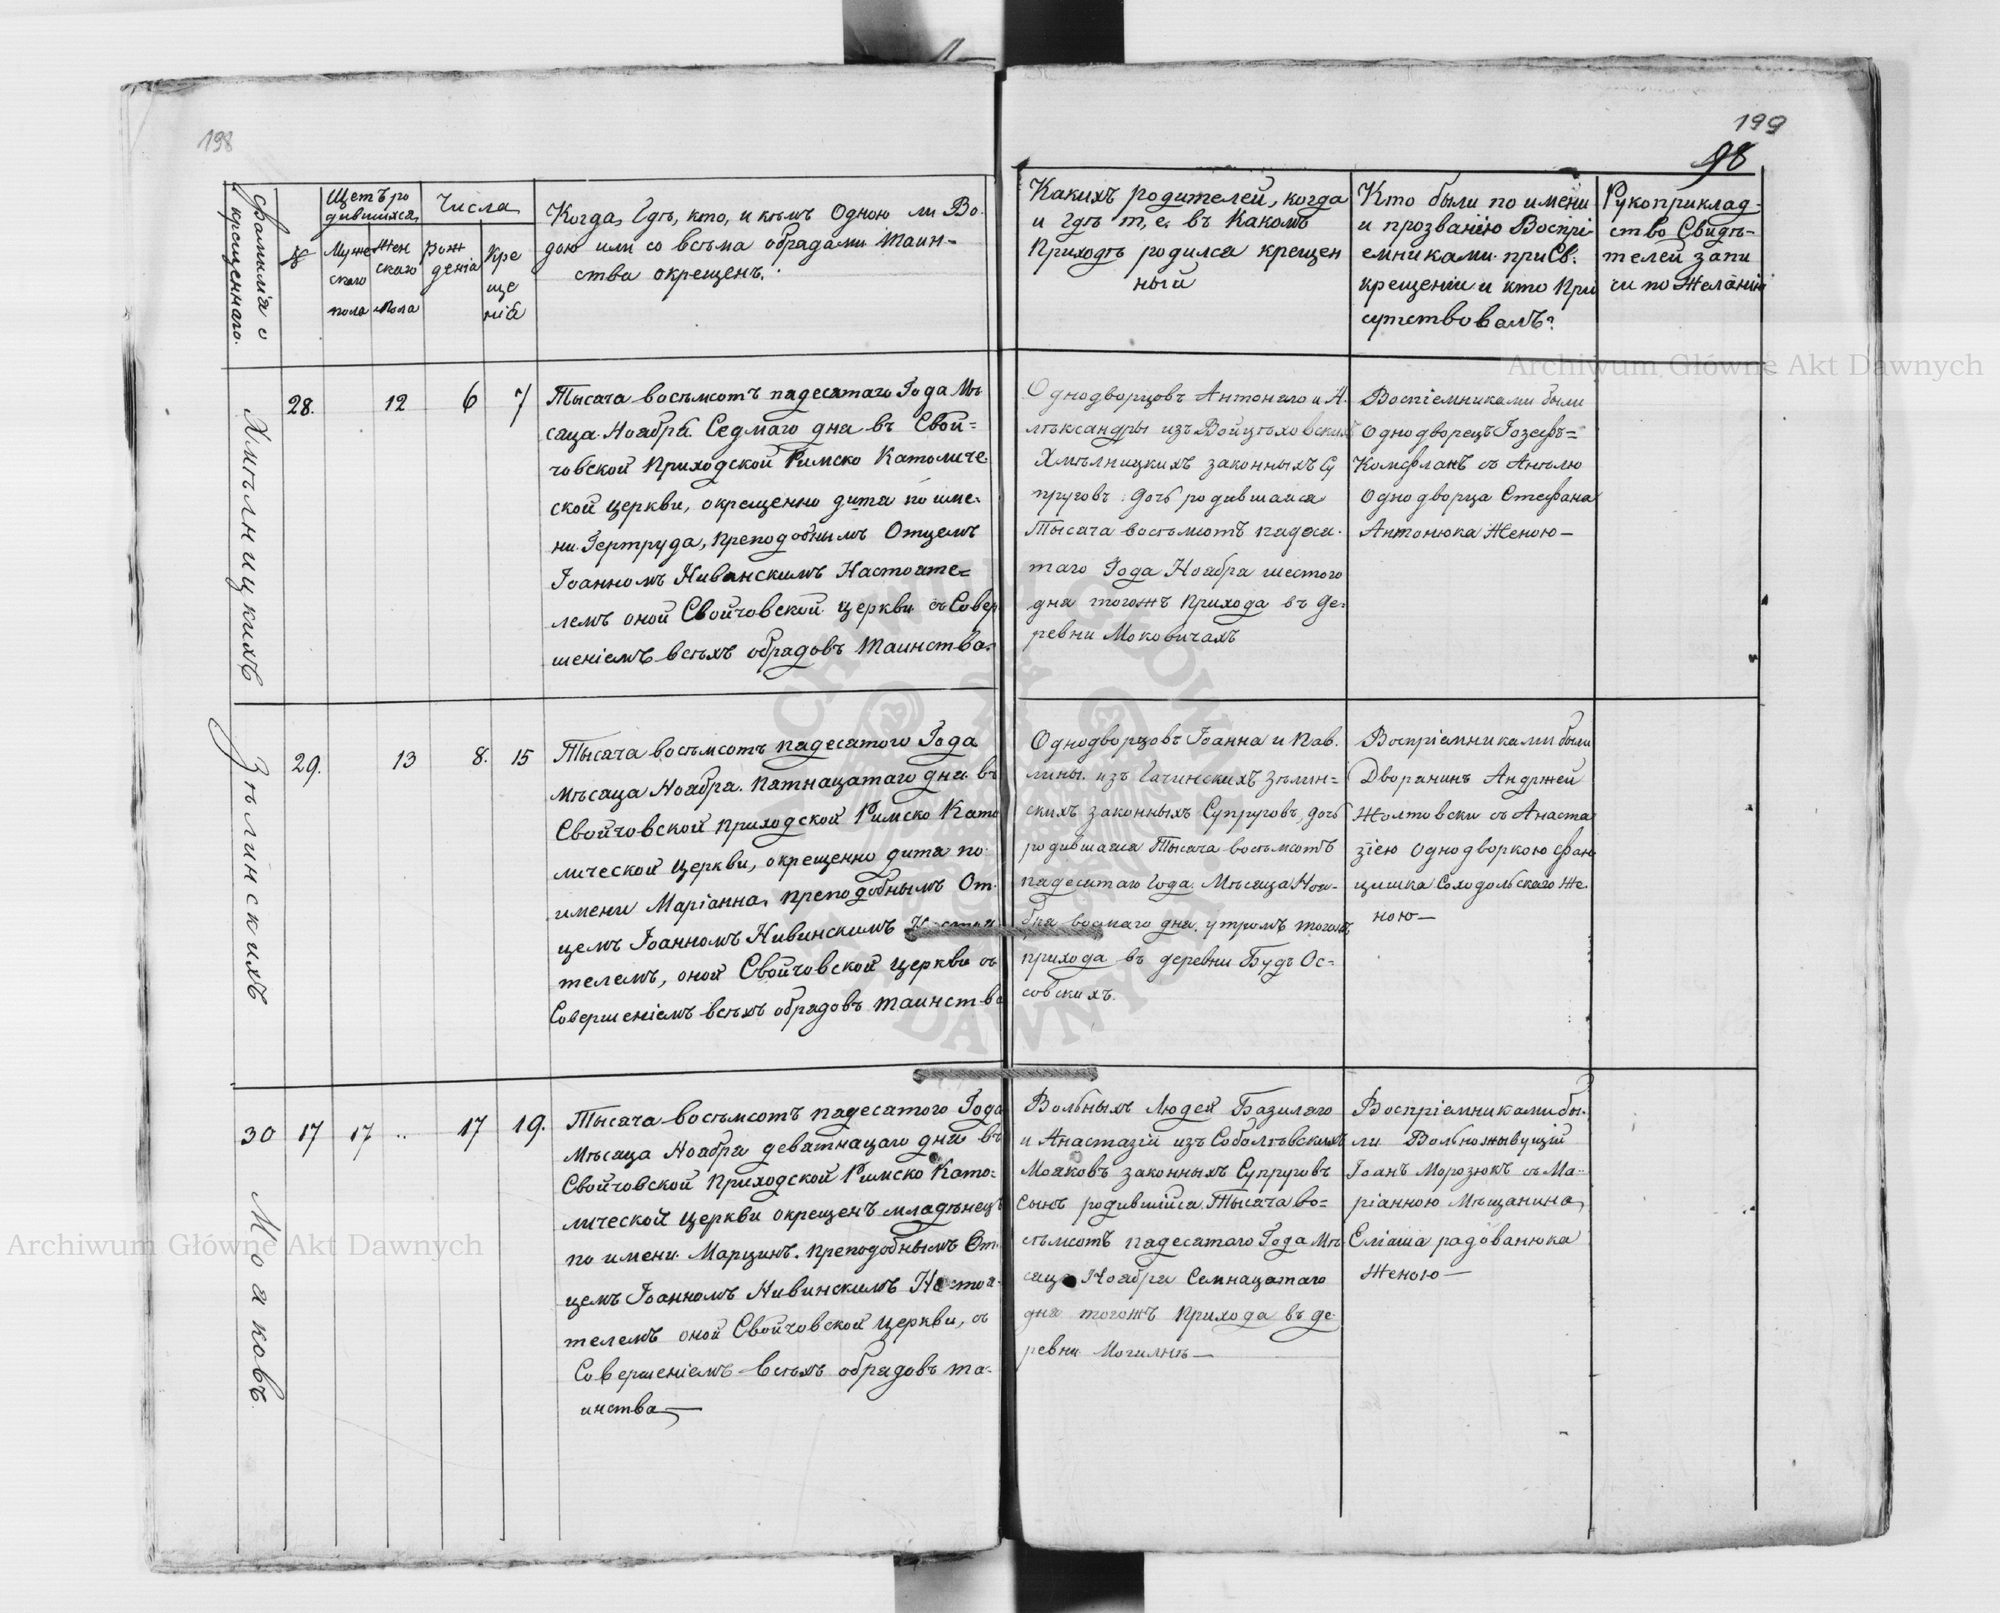 198
199
98
Фамилія о крещеннаго.
№
Щетъ ро
дившихся
Муже
скаго
пола
Жен
скаго
пола
Числа
Рож
денія
Кре
ще
нія
Когда, Гдѣ, кто, и кѣмъ Одною ли Во-
дою или со всѣма обрядами Таин-
ства окрещенъ.
Какихъ родителей, когда
и гдѣ т, е, въ Какомъ
Приходѣ родился крещен
ный
Кто были по имени
и прозванію Воспрі-
емниками при Св.
крещеніи и кто При
сутствовалъ?
Рукоприклад-
ство Свидѣ-
телей запи
си по Желанію
Хмѣльницкихъ
28.
12
6
7
Тысяча восѣмсотъ пядесятаго Года Мѣ
сяца Ноября Седмаго дня въ Свой=
човской Приходской Римско Католиче
ской церкви, окрещенно дитя по име-
ни Гертруда, Преподобнымъ Отцемъ
Іоанномъ Нивинскимъ Настояте=
лемъ оной Свойчовской церкви съ Совер
шеніемъ всѣхъ обрядовъ Таинства.
Однодворцовъ Антонего и А-
лѣксандры изъ Войцѣховскихъ
Хмѣлницкихъ законныхъ Су
пруговъ дочь родившаяся
Тысяча восѣмсотъ пядеся-
таго Года Ноября шестого
дня тогожъ Прихода въ Де-
ревни Моковичахъ
Воспіемниками были
Однодворецъ Іозефъ=
Комфланъ съ Анѣлю
Однодворца Стефана
Антонюка Женою—
Зѣлинскихъ
29.
13
8.
15
Тысяча восѣмсотъ пядесятого Года
Мѣсяца Ноября Пятнацатаго дня въ
Свойчовской Приходской Римско Като
лической Церкви, окрещенно дитя по
имени Маріанна, Преподобнымъ От-
цемъ Іоанномъ Нивинскимъ Настоя
телемъ, оной Свойчовской Церкви съ
Совершеніемъ всѣхъ обрядовъ Таинства
Однодворцовъ Іоанна и Пав-
лины изъ Гачинскихъ Зѣлин=
скихъ законныхъ Супруговъ, дочь
родившаяся Тысяча восѣмсотъ
пядесятаго Года Мѣсяца Ноя-
бря восмаго дня, утромъ тогожъ
прихода въ деревни Будъ Ос=
совскихъ.
Воспріемниками были
Дворянинъ Андржей
Жолтовски съ Анаста
зіею Однодворкою Фран
цишка Солодольскаго Же-
ною—
30
Моаковъ
17
17
..
17
19.
Тысяча восѣмсотъ пядесятого Года
Мѣсяца Ноября девятнацаго дня въ
Свойчовской Приходской Римско Като-
лической Церкви окрещенъ младѣнецъ
по имени Марцинъ. Преподобнымъ От-
цемъ Іоанномъ Нивинскимъ Настоя-
телемъ оной Свойчовской Церкви, съ
Совершеніемъ всѣхъ обрядовъ та-
инства—
Вольныхъ Людей Базилаго
и Анастазіи изъ Соболѣвскихъ
Моаковъ законныхъ Супруговъ
Сынъ родившійся Тысяча во=
сѣмсотъ пядесятаго Года Мѣ
сяца Ноября Семнацатаго
дня тогожъ Прихода въ де-
ревни Могилнѣ—
Воспріемниками бы-
ли Вольноживущій
Іоанъ Морозюкъ съ Ма-
ріанною Мѣщанина
Еліаша радованюка
Женою—
Archiwum Główne Akt Dawnych
Archiwum Główne Akt Dawnych
ARCHIWUM GŁÓWNE AKT DAWNYCH